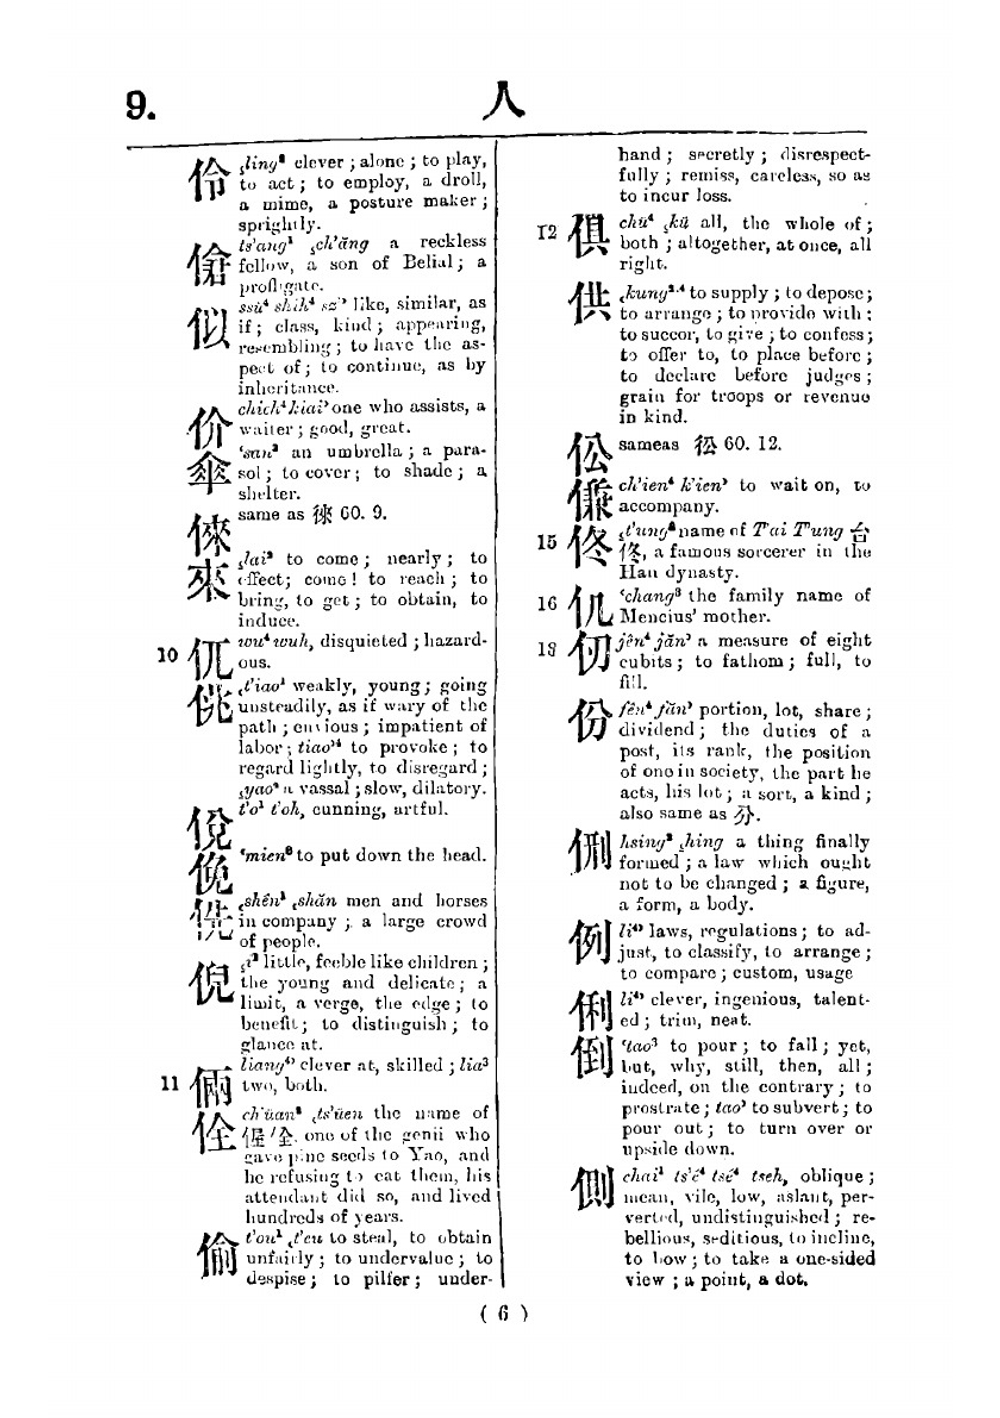 9.
人
伶 ˛ling² clever ; alone ; to play,
to act ; to employ, a droll,
a mime, a posture maker ;
sprightly.
傖 ts'ang¹ ˛ch'ăng a reckless
fellow, a son of Belial ; a
profligate.
似 ssŭ⁴ shih⁴ sz’ like, similar, as
if ; class, kind ; appearing,
resembling ; to have the as-
pect of ; to continue, as by
inheritance.
价 chieh⁴ kiai’ one who assists, a
waiter ; good, great.
傘 ‘san³ an umbrella ; a para-
sol ; to cover ; to shade ; a
shelter.
倈 same as 徠 60. 9.
來 ˛lai² to come ; nearly ; to
effect ; come ! to reach ; to
bring, to get ; to obtain, to
induce.
10 伆 wu⁴ wuh, disquieted ; hazard-
ous.
佻 ˛t'iao¹ weakly, young ; going
unsteadily, as if wary of the
path ; envious ; impatient of
labor ; tiao’⁴ to provoke ; to
regard lightly, to disregard ;
˛yao² a vassal ; slow, dilatory.
侻 t'o¹ t'oh, cunning, artful.
俛 ‘mien³ to put down the head.
侁 ˛shên¹ ˛shăn men and horses
in company ; a large crowd
of people.
倪 ˛i² little, feeble like children ;
the young and delicate ; a
limit, a verge, the edge ; to
benefit ; to distinguish ; to
glance at.
11 倆 liang⁴’ clever at, skilled ; lia³
two, both.
佺 ch'üan² ˛ts'üen the name of
偓佺, one of the genii who
gave pine seeds to Yao, and
he refusing to eat them, his
attendant did so, and lived
hundreds of years.
偷 t'ou¹ ˛t'eu to steal, to obtain
unfairly ; to undervalue ; to
despise ; to pilfer ; under-
hand ; secretly ; disrespect-
fully ; remiss, careless, so as
to incur loss.
12 俱 chü⁴ ˛kü all, the whole of ;
both ; altogether, at once, all
right.
供 ˛kung¹·⁴ to supply ; to depose ;
to arrange ; to provide with ;
to succor, to give ; to confess ;
to offer to, to place before ;
to declare before judges ;
grain for troops or revenue
in kind.
伀 sameas 彸 60. 12.
傔 ch'ien⁴ k'ien’ to wait on, to
accompany.
15 佟 ˛t'ung² name of T'ai T'ung 台
佟, a famous sorcerer in the
Han dynasty.
16 仉 ‘chang³ the family name of
Mencius' mother.
18 仞 jên⁴ jăn’ a measure of eight
cubits ; to fathom ; full, to
fill.
份 fên⁴ făn’ portion, lot, share ;
dividend ; the duties of a
post, its rank, the position
of one in society, the part he
acts, his lot ; a sort, a kind ;
also same as 分.
侀 hsing² ˛hing a thing finally
formed ; a law which ought
not to be changed ; a figure,
a form, a body.
例 li⁴’ laws, regulations ; to ad-
just, to classify, to arrange ;
to compare ; custom, usage
俐 li⁴’ clever, ingenious, talent-
ed ; trim, neat.
倒 ‘tao³ to pour ; to fall ; yet,
but, why, still, then, all ;
indeed, on the contrary ; to
prostrate ; tao’ to subvert ; to
pour out ; to turn over or
upside down.
側 chai¹ ts'é⁴ tsé⁴ tseh, oblique ;
mean, vile, low, aslant, per-
verted, undistinguished ; re-
bellious, seditious, to incline,
to bow ; to take a one-sided
view ; a point, a dot.
( 6 )